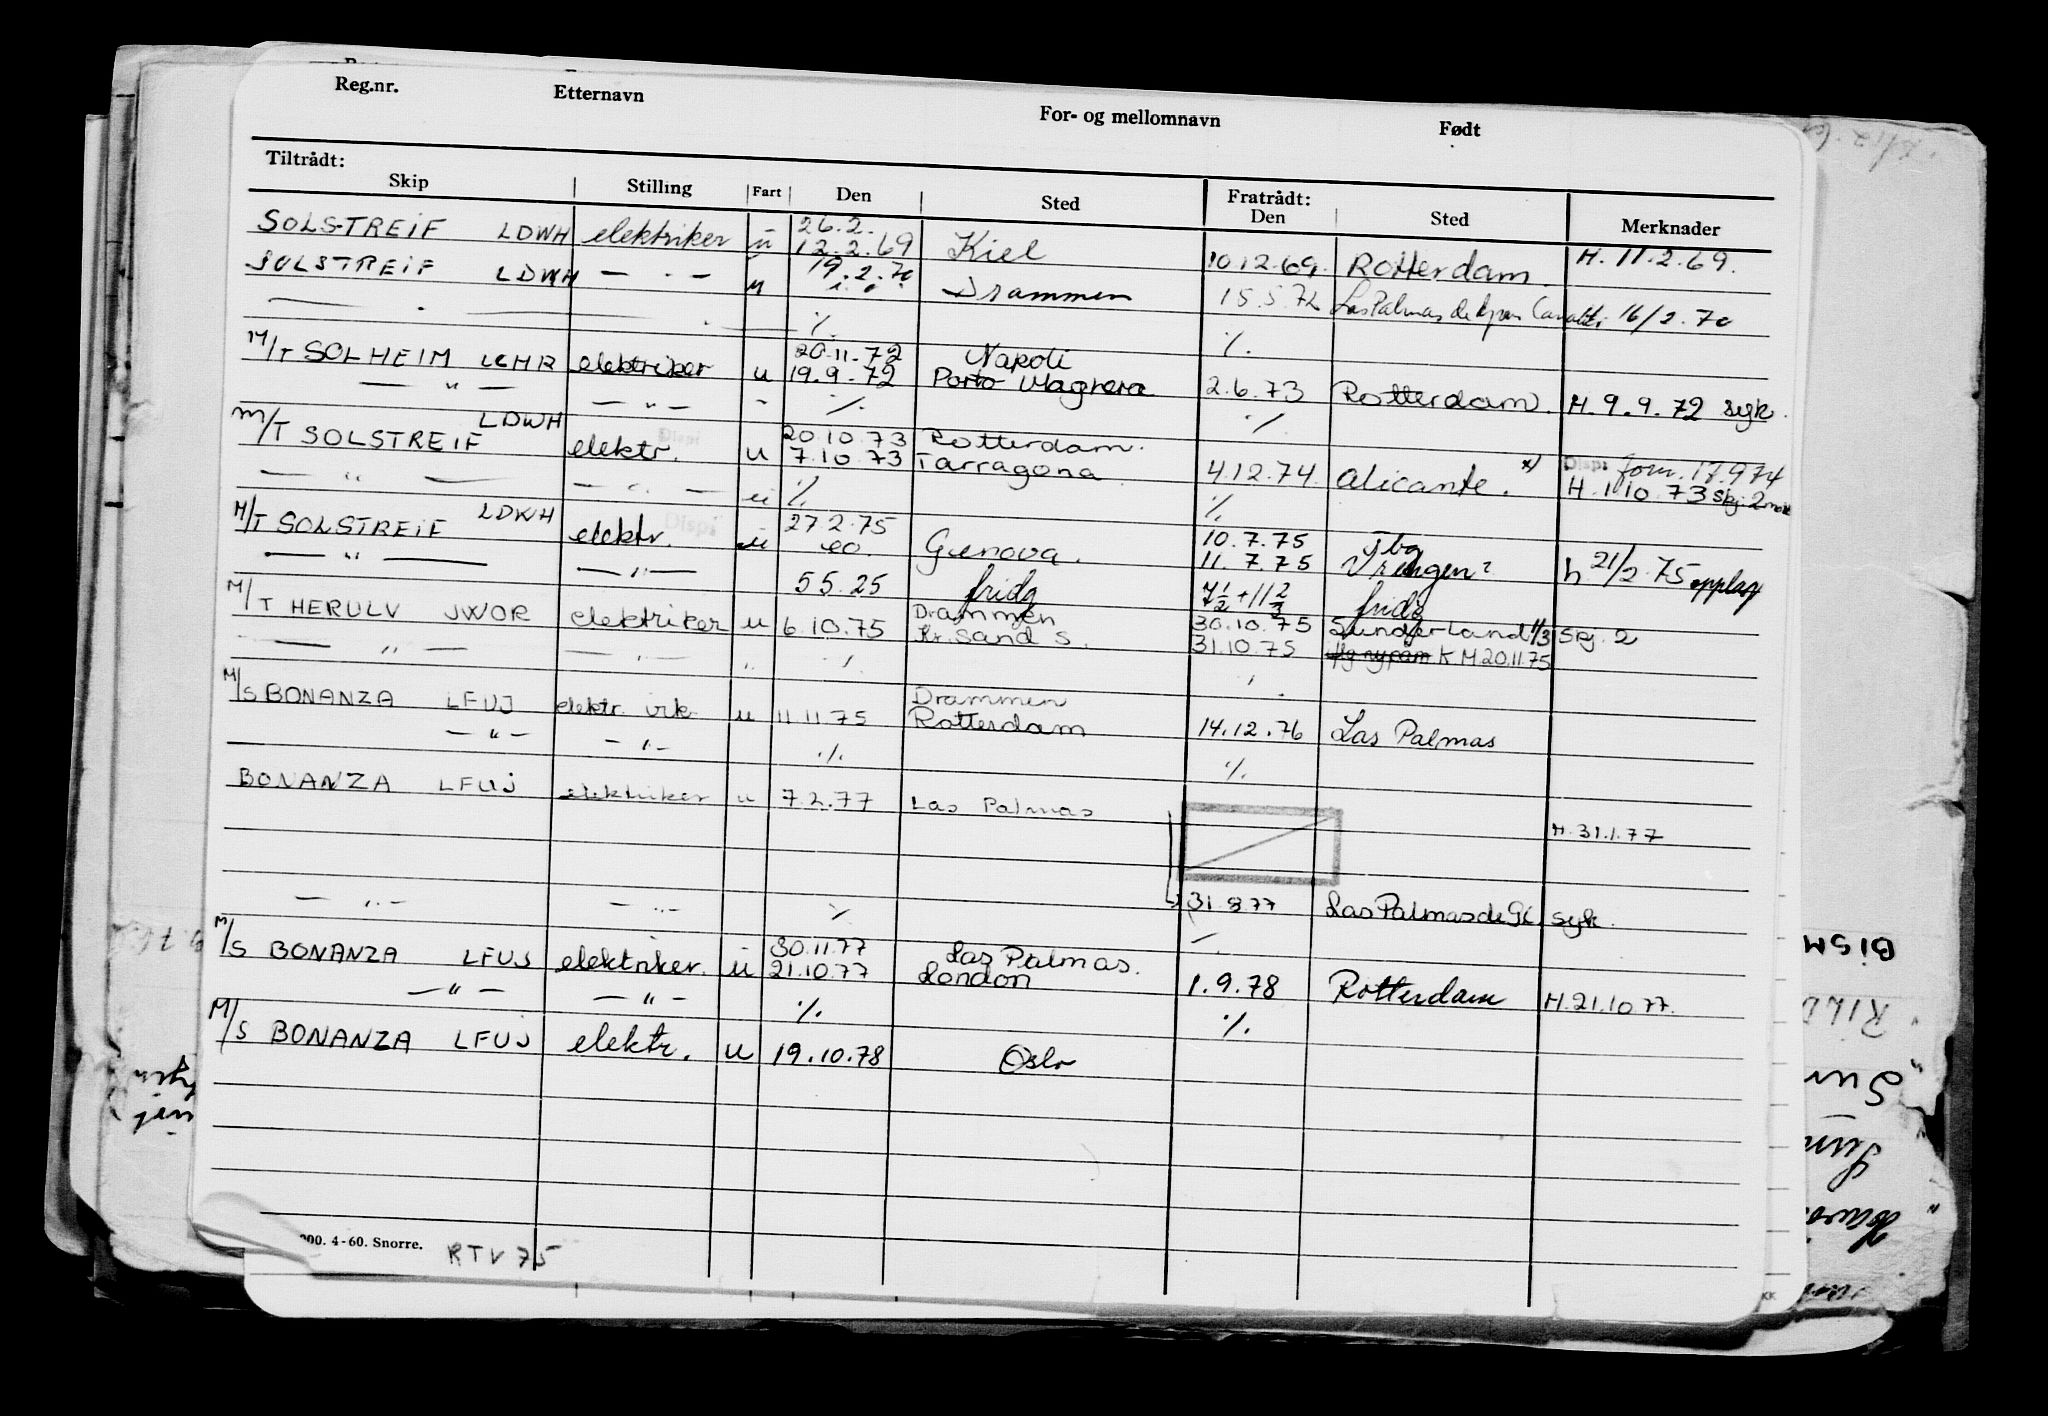 Reg.nr. Etternavn For- og mellomnavn Født
Tiltrådt: Fratrådt:
Skip Stilling Fart Den Sted Den Sted Merknader
26.2.
SOLSTREIF LDWH elektriker u 12.2.69 Kiel 10.12.69. Rotterdam. H. 11.2.69.
SOLSTREIF LDWH — " — u 19.2.70 Drammen 15.5.72 Las Palmas de 16/2.70
— . — ./.
20.11.72 Napoli ./.
M/T SOLHEIM LCHR elektriker u 19.9.72 Porto Maghera 2.6.73 Rotterdam. H. 9.9.72 syk.
— " — — " — - ./. ./.
LDWH 20.10.73 Rotterdam.
M/T SOLSTREIF elektr. u 7.10.73 Tarragona 4.12.74. Alicante. x) Dispi form. 17.9.74
— " — — " — u ./. ./. H. 1.10.73 Skj. 2 mott
LDWH Dispi 27.2.75 10.7.75 Tbg
M/T SOLSTREIF elektr. u eo. Genova. 11.7.75 Vrengen? h 21/2.75 opplag
— " — — " — 55.25 fridg 7 1/2 + 11 2/3 fridg
M/T HERULV JWOR elektriker u 6.10.75 Drammen 30.10.75 Sunderland 11/3 Skj. 2
Kr.sand S. 31.10.75 K M 20.11.75
— " — — " — " ./. ./.
Drammen
M/S BONANZA LFUJ elektr. vik. u 11.11.75 Rotterdam 14.12.76 Las Palmas
— " — — " — ./. ./.
BONANZA LFUJ elektriker u 7.2.77 Las Palmas
H. 31.1.77
— " — — " — ./. 31.8.77 Las Palmas de GC syk.
30.11.77 Las Palmas. ./.
M/S BONANZA LFUJ elektriker. u 21.10.77 London 1.9.78 Rotterdam H. 21.10.77.
— " — — " — ./. ./.
M/S BONANZA LFUJ elektr. u 19.10.78 Oslo
000. 4-60. Snorre. RTV 75
KK
BISM